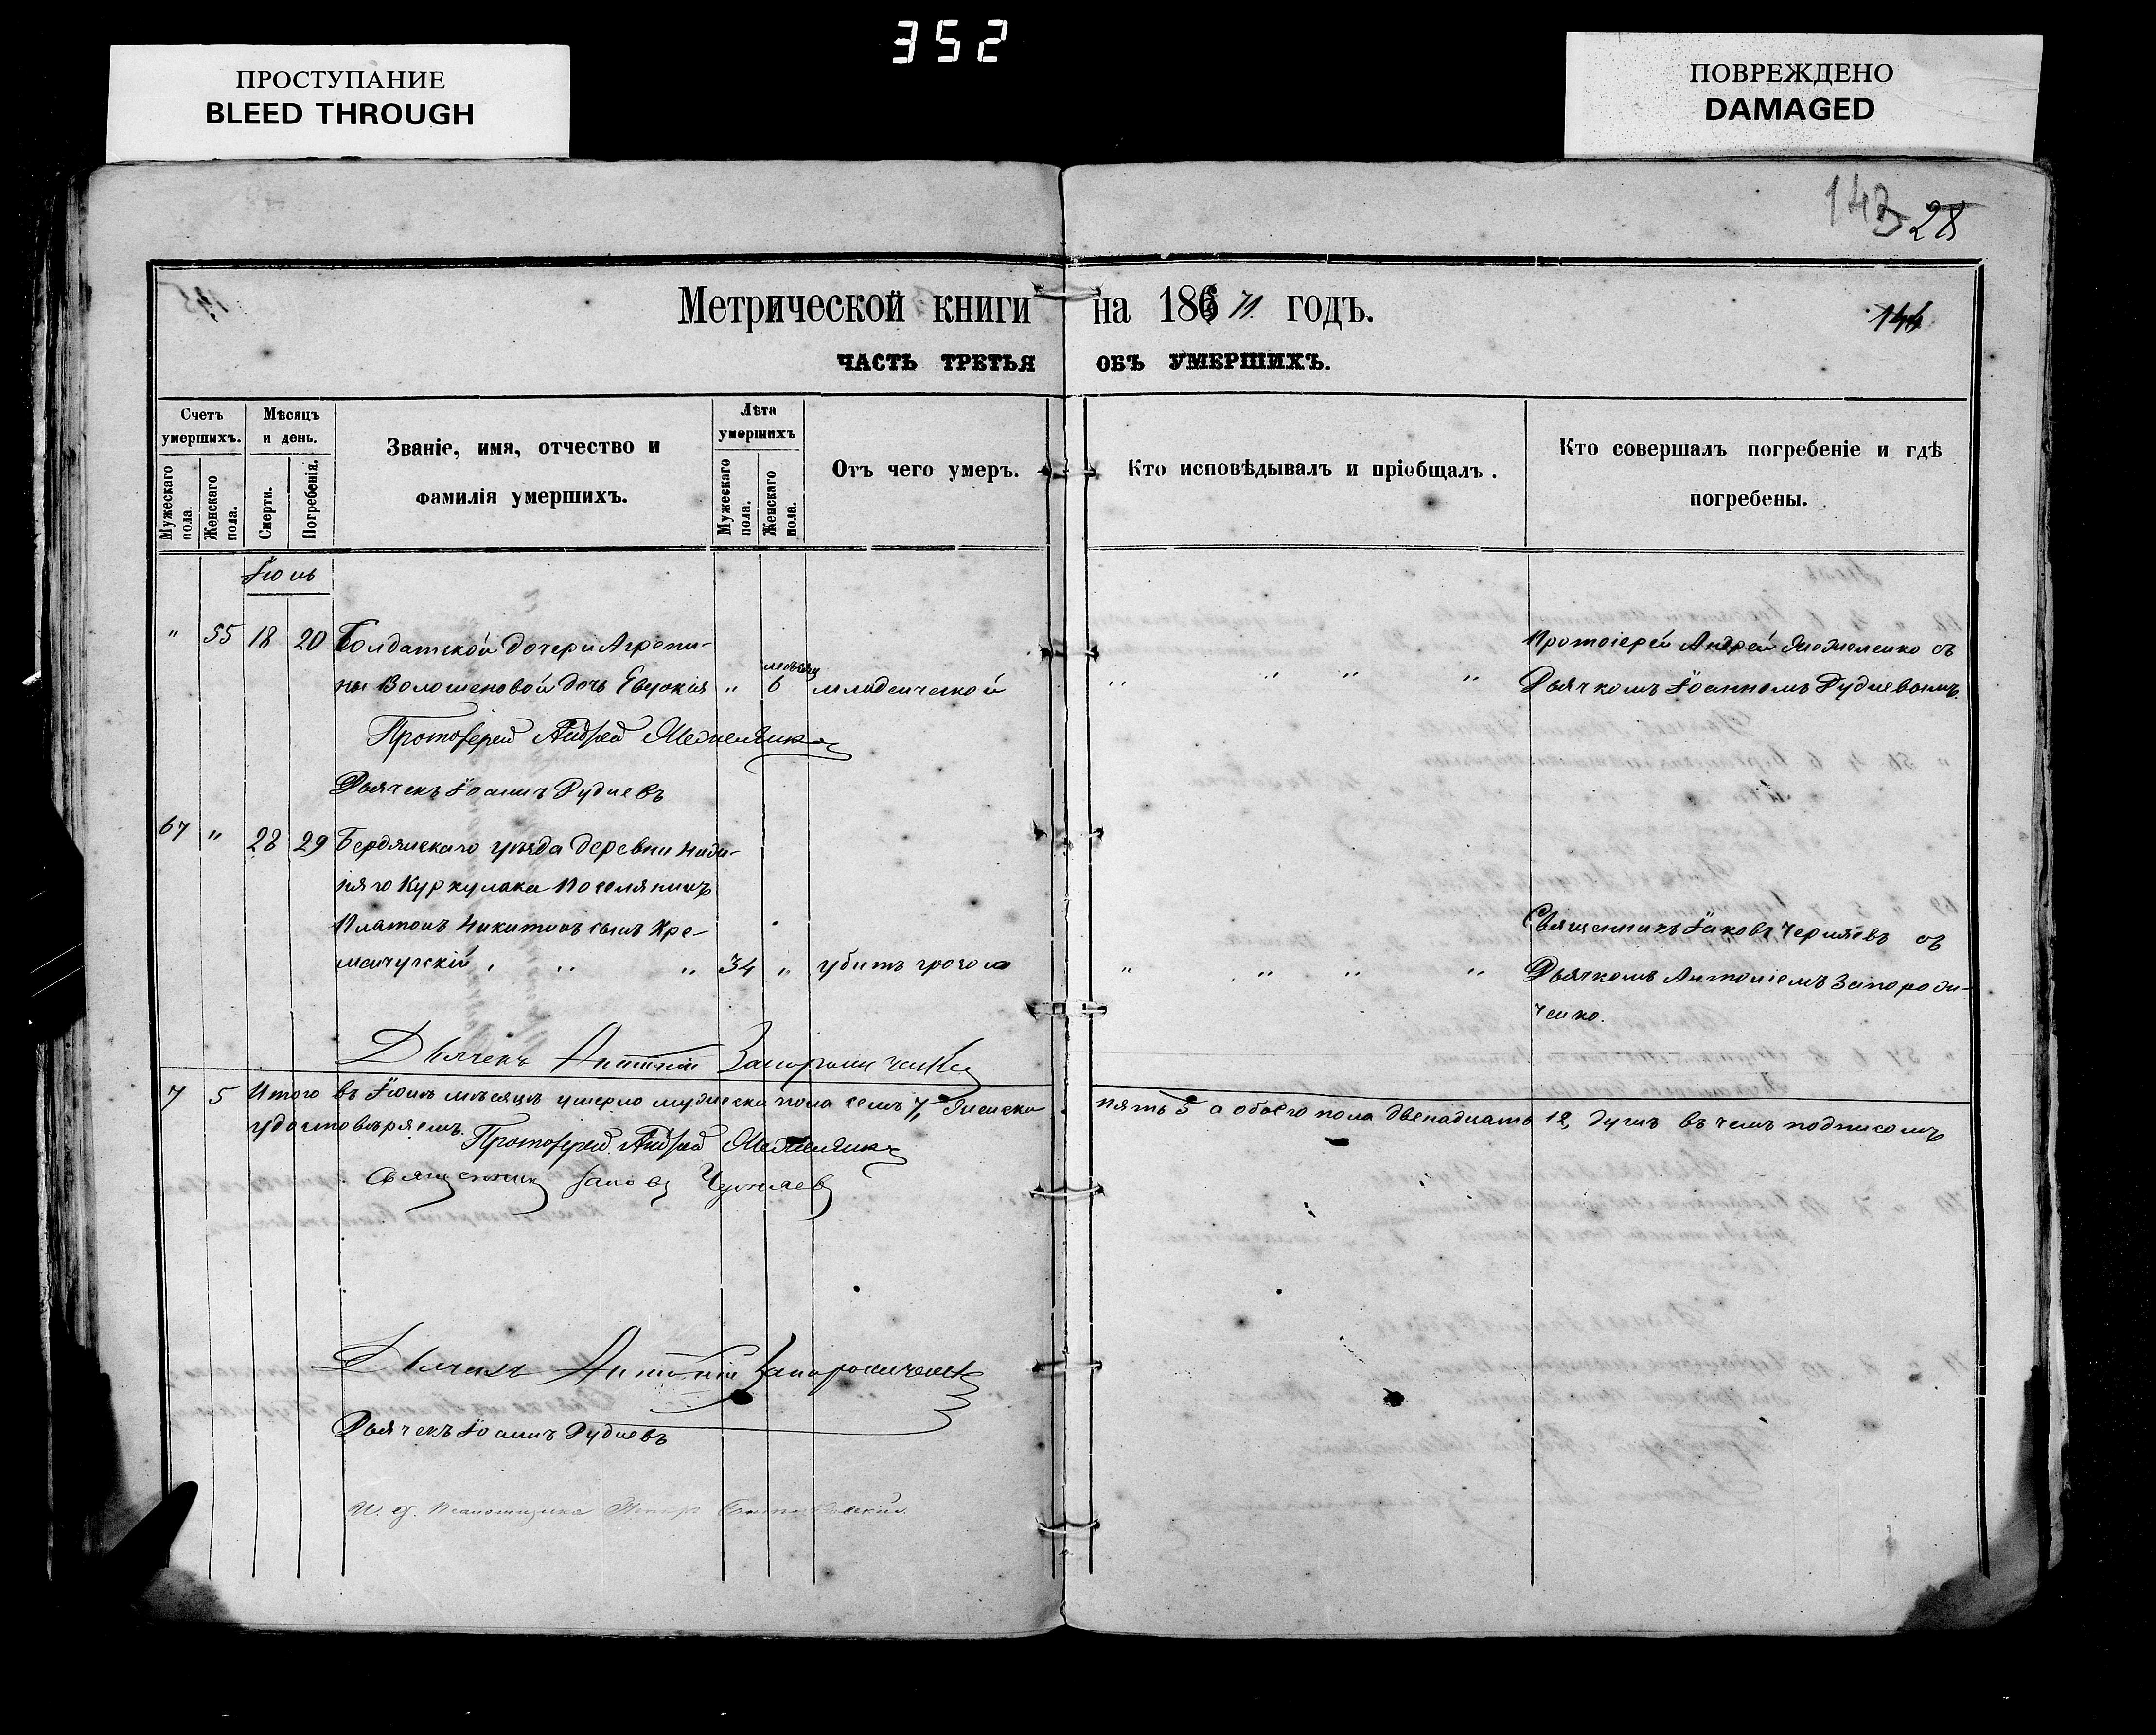 352
ПРОСТУПАНИЕ
BLEED THROUGH
ПОВРЕЖДЕНО
DAMAGED
143 28
Метрической книги на 186 71 годъ.
144
ЧАСТЬ ТРЕТЬЯ ОБЪ УМЕРШИХЪ.
Счетъ умершихъ.
Мужескаго пола.
Женскаго пола.
Мѣсяцъ и день.
Смерти.
Погребенія.
Званіе, имя, отчество и
фамилія умершихъ.
Лѣта умершихъ
Мужескаго пола.
Женскаго пола.
Отъ чего умеръ.
Кто исповѣдывалъ и пріобщалъ.
Кто совершалъ погребеніе и гдѣ
погребены.
Іюнь
" 55 18 20 Солдатской дочери Агрепи-
ны Волошеновой дочь Евдокія " 6 месяц младенческой
" " " "
Протоіерей Андрей с
Дьячкомъ Іоанномъ Рудневымъ.
Протоіерей Андрей
Дьячекъ Іоаннъ Рудневъ
67 " 28 29 Бердянскаго уѣзда деревни Ниж-
няго Куркулака поселянинъ
Платонъ Никитинъ сынъ Кре-
менчугскій " " 34 " убитъ грозою
" " " "
Священникъ Іаковъ Черняевъ съ
Дьячкомъ Антоніемъ Запорож-
ченко.
Дьячекъ Антоній Запорожченко
7 5 Итого въ Іюнѣ мѣсяцѣ умерло мужеска пола семь 7, женска пять 5 а обоего пола двенадцать 12, душъ въ чемъ подписомъ
удостовѣряемъ. Протоіерей Андрей
Священникъ Іаковъ Черняевъ
Дьячекъ Антоній Запорожченко
Дьячекъ Іоаннъ Рудневъ
И. д. Псаломщика